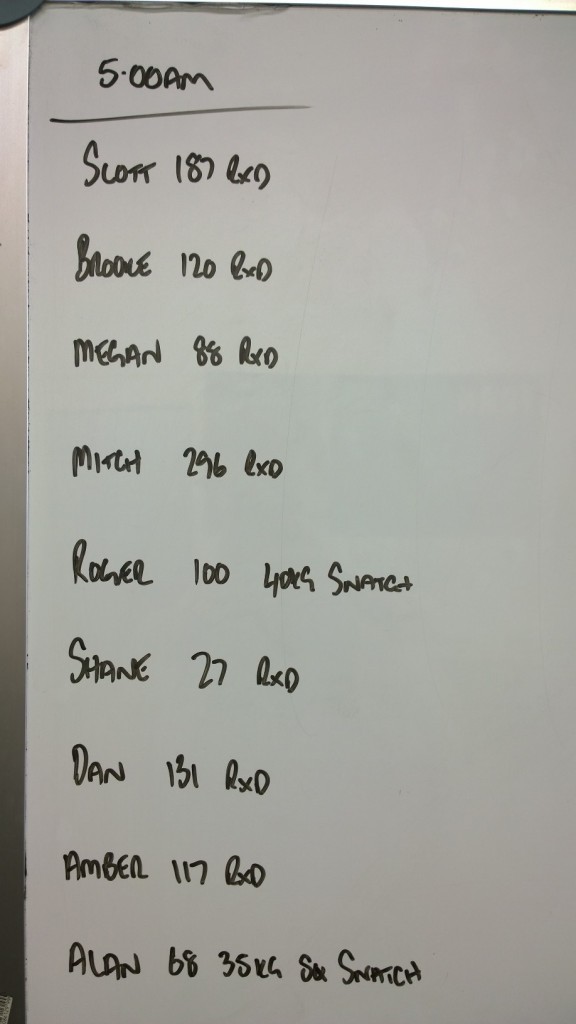 5.00AM
SCOTT 187 RXD
BROOKE 120 RXD
MEGAN 88 RXD
MITCH 296 RXD
ROGER 100 40KG SNATCH
SHANE 27 RXD
DAN 131 RXD
AMBER 117 RXD
ALAN 68 35KG SNATCH